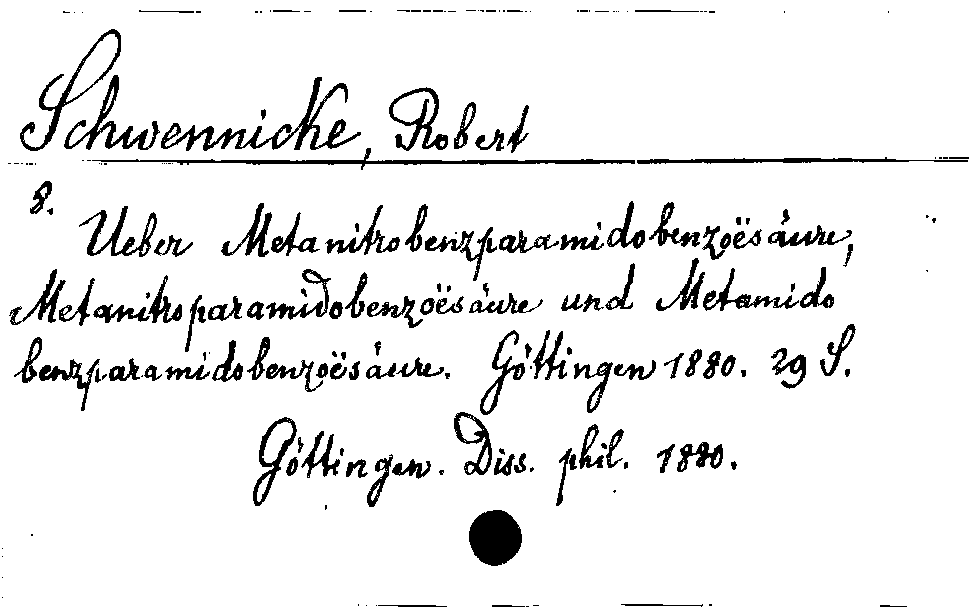 Schwennicke, Robert
8.
Ueber Metanitrobenzparamidobenzoësäure,
Metanitroparamidobenzoësäure und Metamido
benzparamidobenzoësäure. Göttingen 1880. 29 S.
Göttingen. Diss. phil. 1880.